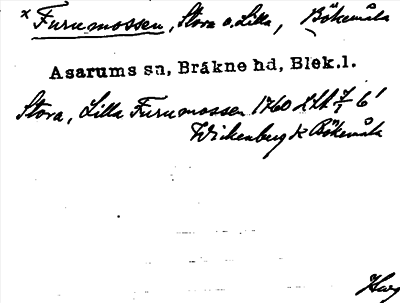 × Furumossen, Stora o. Lilla, Bökemåla
Asarums sn, Bräkne hd, Blek.l.
Stora, Lilla Furumossen 1760
Wickenberg k Bökemåla